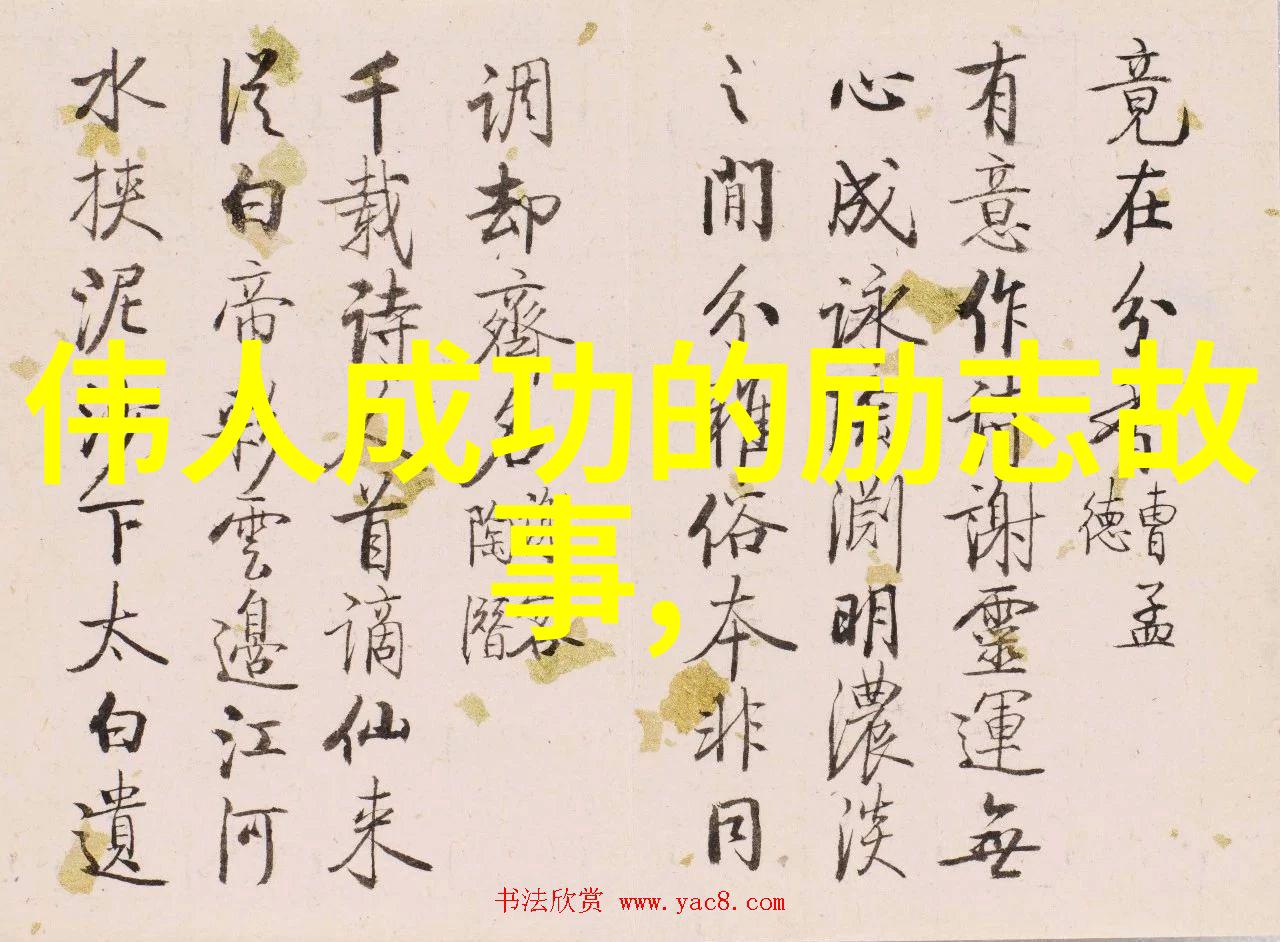 竟在分
曹孟
德
有意作詩謝靈運無
心成詠陶淵明濃淡
之間分雅俗本非同
调却齊名
陶潛
千载诗人首谪仙来
從白帝彩雲邊江河
水挾泥沙下太白遺
伟人成功的励志故
事,
书法欣赏 www.yac8.com